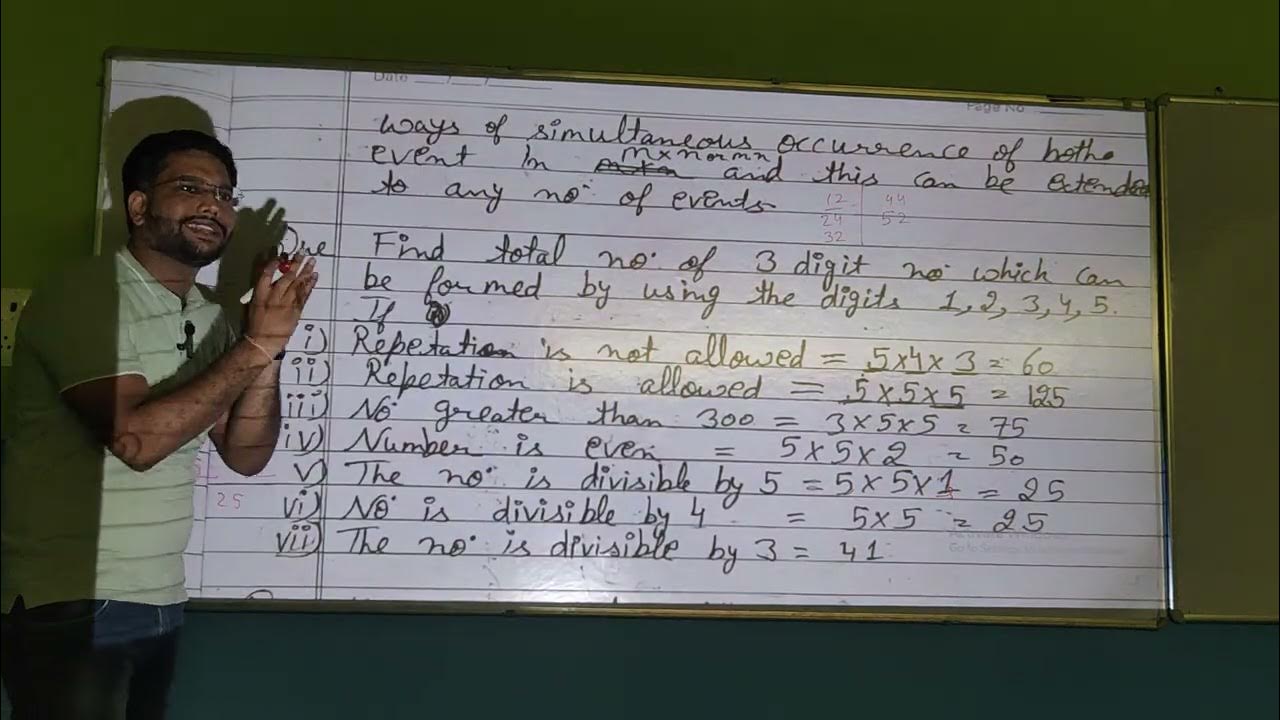 Date
Page No
ways of simultaneous occurrence of bothe
event In m×n or mn and this can be extended
to any no. of events
12 44
24 52
32
Que Find total no. of 3 digit no which can
be formed by using the digits 1, 2, 3, 4, 5.
If
i) Repetation is not allowed = 5×4×3 = 60
ii) Repetation is allowed = 5×5×5 = 125
iii) No greater than 300 = 3×5×5 = 75
iv) Number is even = 5×5×2 = 50
v) The no. is divisible by 5 = 5×5×1 = 25
25
vi) No. is divisible by 4 = 5×5 = 25
vii) The no. is divisible by 3 = 41